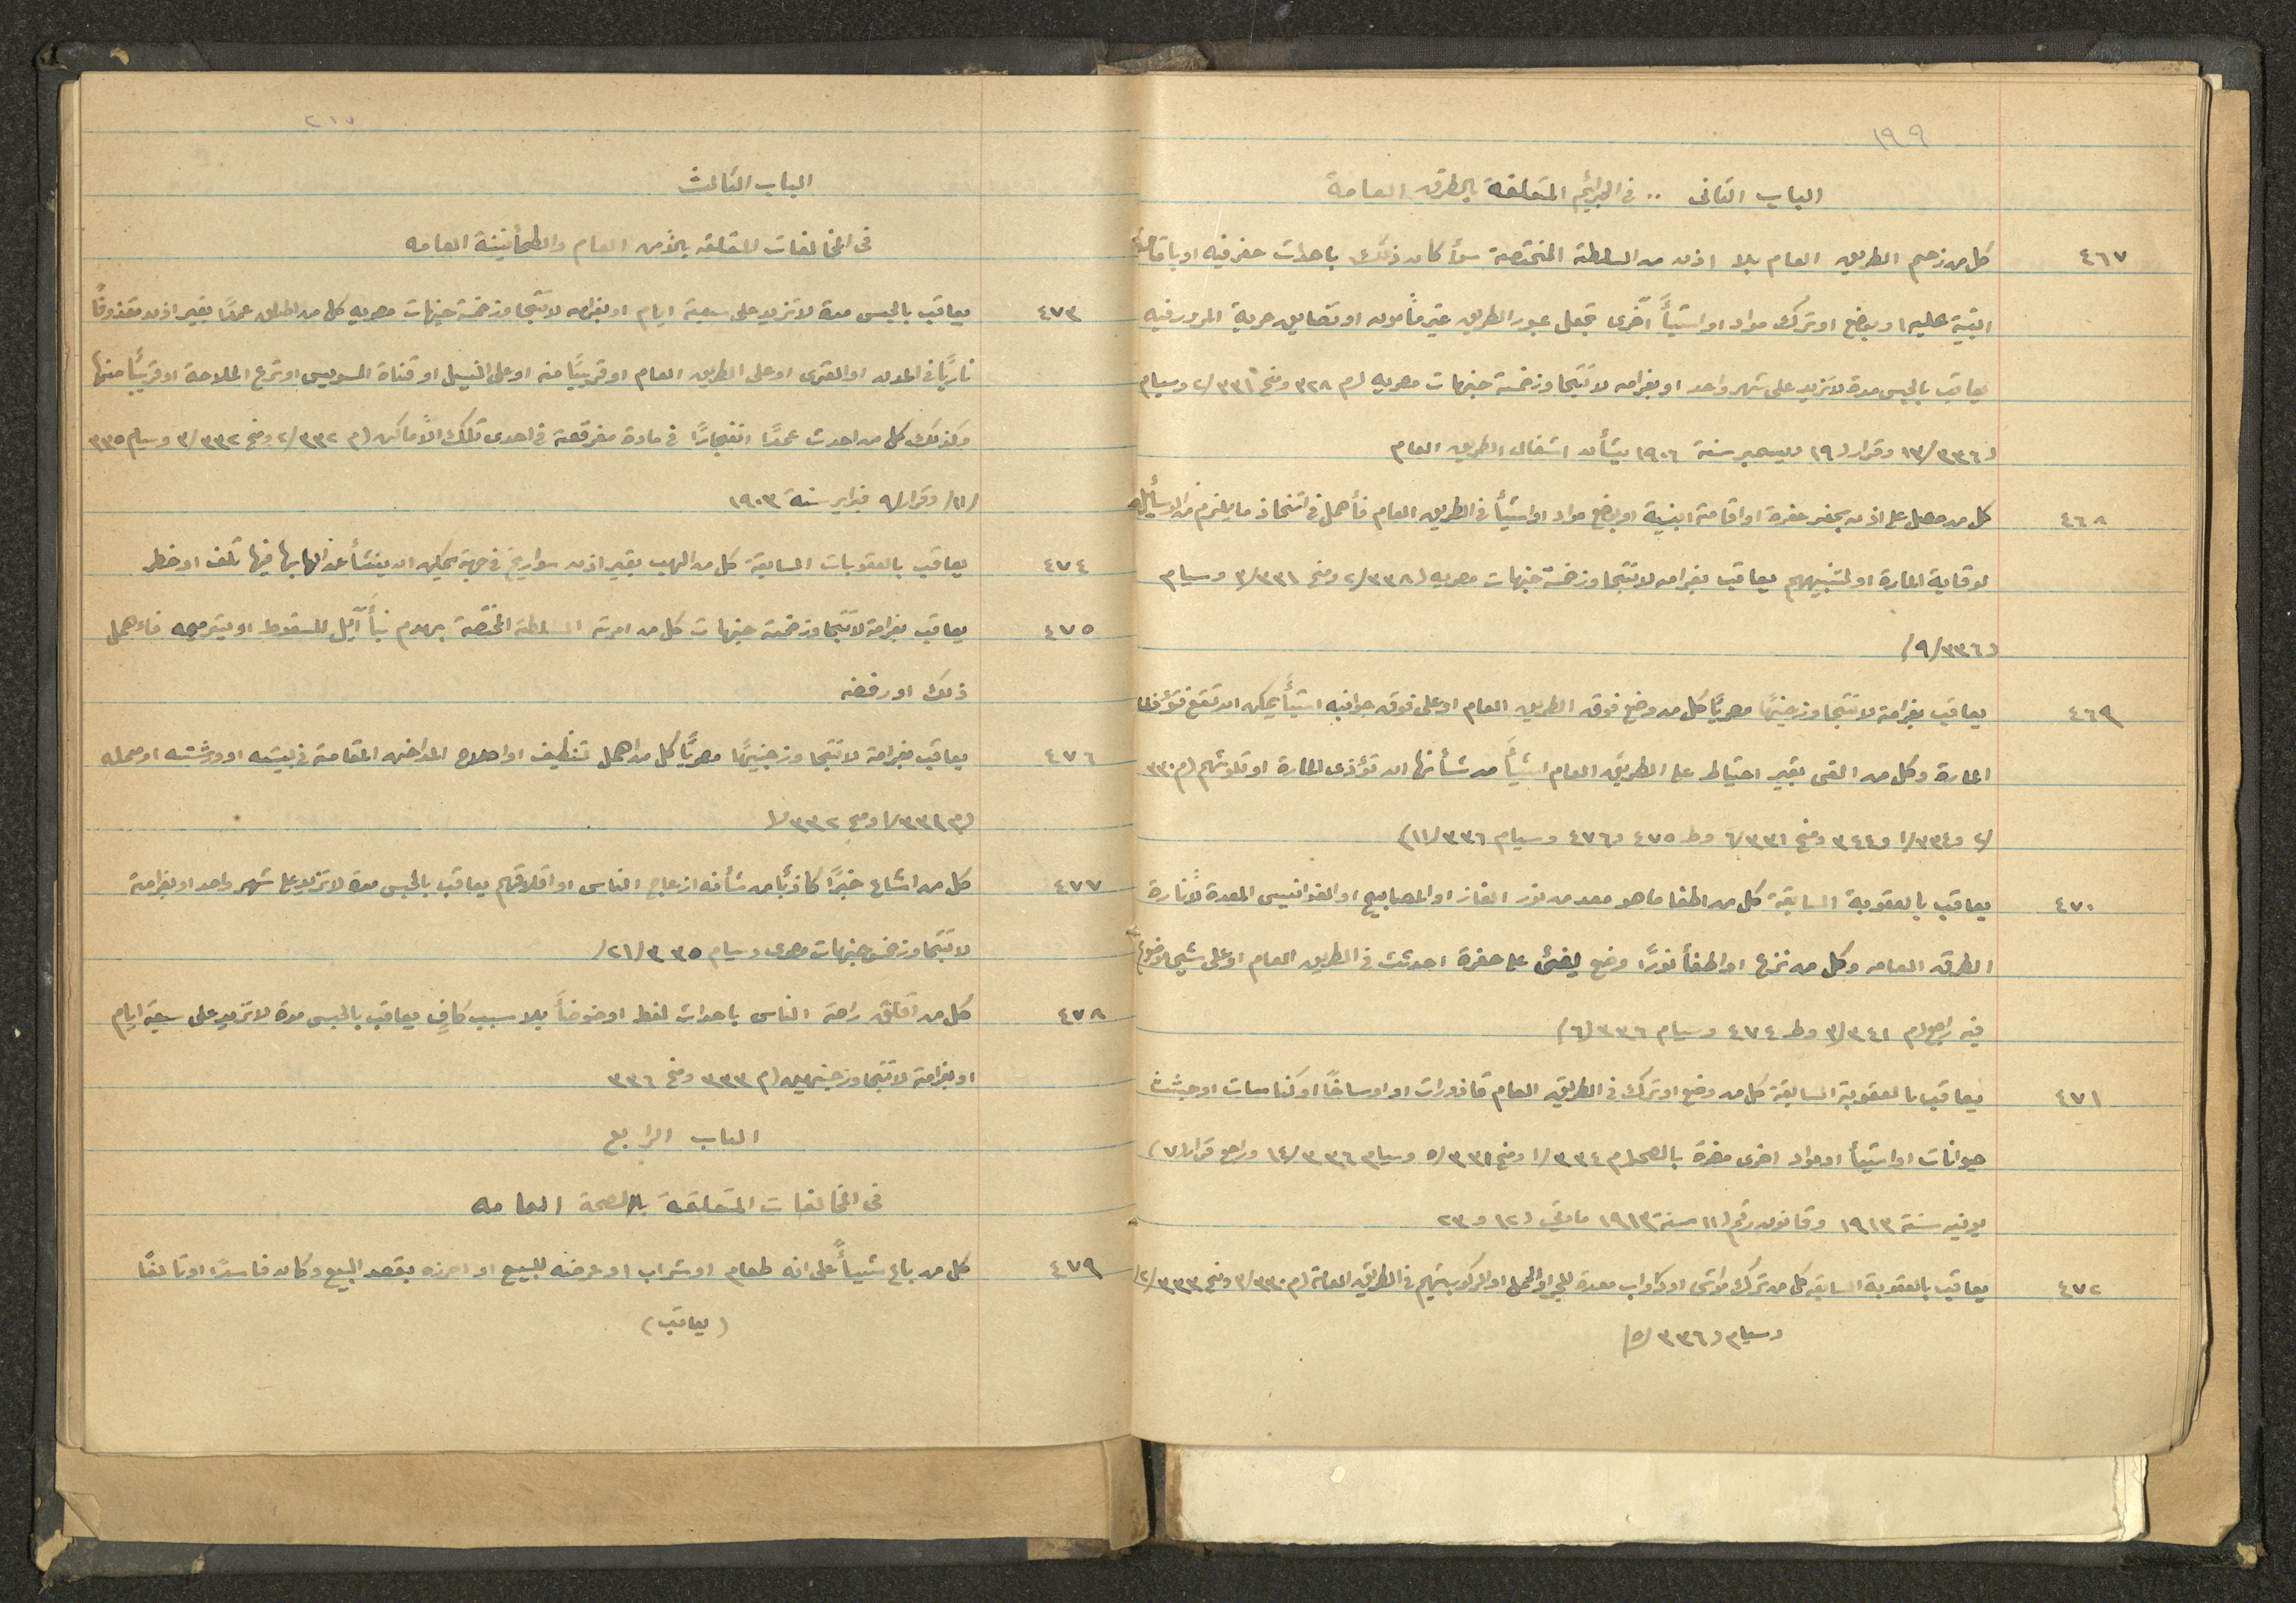 ١٩٩
الباب الثانى .. فى الجرائم المتعلقة بالطرق العامة
٤٦٧ كل من زحم الطريق العام بلا اذن من السلطة المختصة سوأ كان ذلك باحداث حفر فيه او باقامة
ابنية عليه او بوضع او ترك مواد او اشيأً اخرى تجعل عبور الطريق غير مأمون او تضايق حرية المرور فيه
يعاقب بالحبس مدة لا تزيد على شهر واحد او بغرامه لا تتجاوز خمسة جنيهات مصريه (م ٣٢٨ ومخ ٢/٣٣١ وسيام
(١٣/٣٣٦ وقرار (١٩ ديسمبر سنة ١٩٠٦ بشأن اشغال الطريق العام
٤٦٨ كل من حصل على اذن بحفر حفرة او اقامة ابنية او بوضع مواد او اشيأ فى الطريق العام فأهمل فى اتخاذ ما يلزم من الوسأيل
لوقاية المارة او لتنبيههم يعاقب بغرامه لا تتجاوز خمسة جنيهات مصريه (٢/٣٣٨ ومخ ٣/٣٣١ وسيام
(٩/٣٣٦)
٤٦٩ يعاقب بغرامة لا تتجاوز جنيهًا مصريًا كل من وضع فوق الطريق العام او على فوق جوانبه اشيأً يمكن ان تقع فتؤذى
المارة وكل من القى بغير احتياط على الطريق العام اشيأً من شأنها ان تؤذى المارة او تلوثهم (م ٣٣٠
/٢ و١/٣٣٤ و٣٤٤ ومخ ٦/٣٣١ وط ٤٧٥ و٤٧٦ وسيام ١١/٣٣٦)
٤٧٠ يعاقب بالعقوبة السابقة كل من اطفا ما هو معد من نور الغاز او المصابيح او الفوانيس المعدة لأنارة
الطرق العامه وكل من نزع او اطفأ نورًا وضع ليضئ على حفرة احدثت فى الطريق العام او على شئ موضوع
فيه راجع (م ٣/٣٤١ وط ٤٧٤ وسيام ٣٣٦ (٦)
٤٧١ يعاقب بالعقوبة السابقة كل من وضع او ترك فى الطريق العام قاذورات او اوساخًا او كناسات او جثث
حيوانات او اشيأ او مواد اخرى مضرة بالصحه (م ١/٣٣٤ ومخ ٥/٣٣١ وسيام ١٤/٣٣٦ وراجع قرار (٧)
يونيه سنة ١٩١٣ وقانون رقم (١١ سنة ١٩١٣ مادتى (١٢ و ٢٣
٤٧٢ يعاقب بالعقوبة السابقة كل من ترك مواشى او دواب معدة للجر او الحمل او للركوب تهيم فى الطريق العامة (م ٣/٣٣٠ ومخ ٢/٣٣٣
وسيام (٥/٣٣٦)
٢١٧
الباب الثالث
فى المخالفات المتعلقه بالأمن العام والطمأنينة العامه
٤٧٣ يعاقب بالحبس مدة لا تزيد على سبعة ايام او بغرامه لا تتجاوز خمسة جنيهات مصريه كل من اطلق عمدًا بغير اذن مقذوفًا
ناريًا فى المدن او القرى او على الطريق العام او قريبًا منه او على النيل او قناة السويس او ترع الملاحة او قريبًا منها
وكذلك كل من احدث عمدًا انفجارًا فى مادة مفرقعة فى احدى تلك الأماكن (م ٢/٣٣٢ ومخ ٣/٣٣٢ وسيام ٣٣٥
/١١/ وقرار/٩ فبراير سنة ١٩٠٣
٤٧٤ يعاقب بالعقوبات السابقة كل من الهب بغير اذن سواريخ فى جهة يمكن ان ينشأ عن الهابها فيها تلف او خطر
٤٧٥ يعاقب بغرامة لا تتجاوز خمسة جنيهات كل من امرته السلطة المختصة بهدم بنأ آيل للسقوط او بترميمه فاهمل
ذلك او رفضه
٤٧٦ يعاقب بغرامة لا تتجاوز جنيهًا مصريًا كل من اهمل تنظيف او اصلاح المداخن المقامة فى بيته او ورشته او معمله
(م ١/٣٣١ ومخ ١/٣٣٢
٤٧٧ كل من اشاع خبرًا كاذبًا من شأنه ازعاج الناس او اقلاقهم يعاقب بالحبس مدة لا تزيد على شهر واحد او بغرامة
لا تتجاوز خمس جنيهات مصرى وسيام ٣٣٥ /٢١/
٤٧٨ كل من اقلق راحة الناس باحداث لغط او ضوضأً بلا سبب كافٍ يعاقب بالحبس مدة لا تزيد على سبعة ايام
او بغرامة لا تتجاوز جنيهين (م ٣٣٣ ومخ ٣٣٦
الباب الرابع
فى المخالفات المتعلقة بالصحة العامه
٤٧٩ كل من باع شيأً على انه طعام او شراب او عرضه للبيع او احرزه بقصد البيع وكان فاسدًا او تالفًا
(يعاقب)